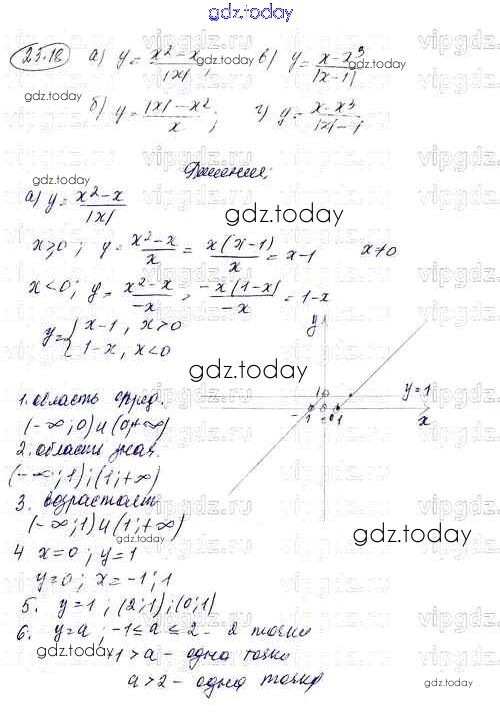 gdz.today
23.18 а) y = x²-x / |x| ; в) y = x-x³ / |x-1|
gdz.today
б) y = |x|-x² / x ; г) y = x-x³ / |x|-1
gdz.today
Решение:
gdz.today
а) y = x²-x / |x|
gdz.today
x≥0; y = x²-x / x = x(x-1) / x = x-1 x≠0
x<0; y = x²-x / -x = -x(1-x) / -x = 1-x
y = { x-1, x>0
1-x, x<0
y
gdz.today
1 y=1
-1 0 1 x
1. область опред.
(-∞; 0) и (0+∞)
2. области знач.
(-∞; 1); (1; +∞)
3. возрастает
(-∞; 1) и (1; +∞)
gdz.today
4 x=0; y=1
y=0; x=-1; 1
gdz.today
5. y=1; (2; 1); (0; 1)
6. y=a; -1≤a≤2 - 2 точки
gdz.today
1>a - одна точка
a>2 - одна точка
gdz.today